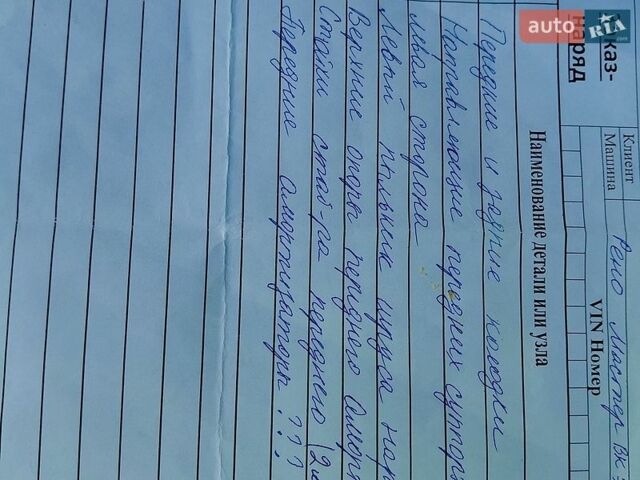 auto RIA .com
каз-
наряд
Клиент
Машина Рено Мастер ВК
VIN Номер
Наименование детали или узла
Передние и задние колодки
Направляющие передних суппор
Левая сторона
Левый пыльник шруса нар
Верхние опоры переднего аморт
Стойки стаб-ра переднего (2
Передние амортизаторы ???